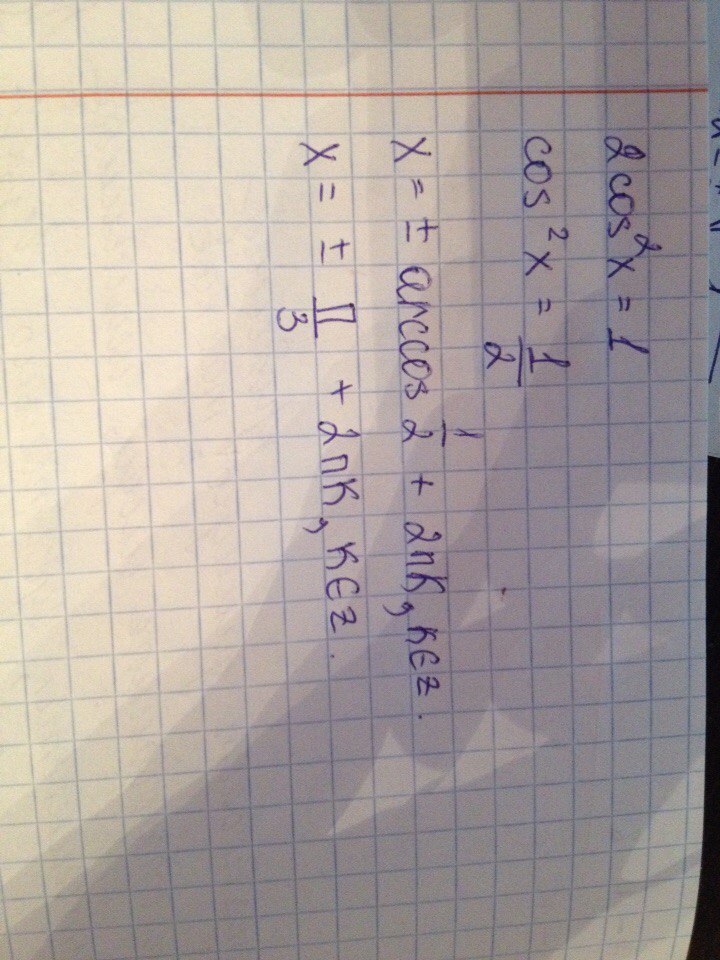 2cos²x = 1
cos²x = 1/2
x = ± arccos 1/2 + 2πk, k∈z.
x = ± π/3 + 2πk, k∈z.